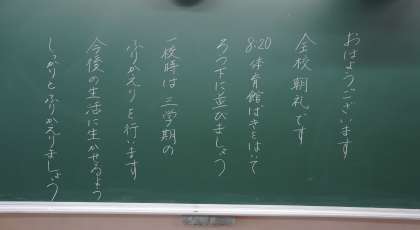 おはようございます
全校朝礼です
8:20 体育館はきをはいて
ろう下に並びましょう
一校時は 三学期の
ふりかえりを行います
今後の生活に生かせるよう
しっかりとふりかえりましょう